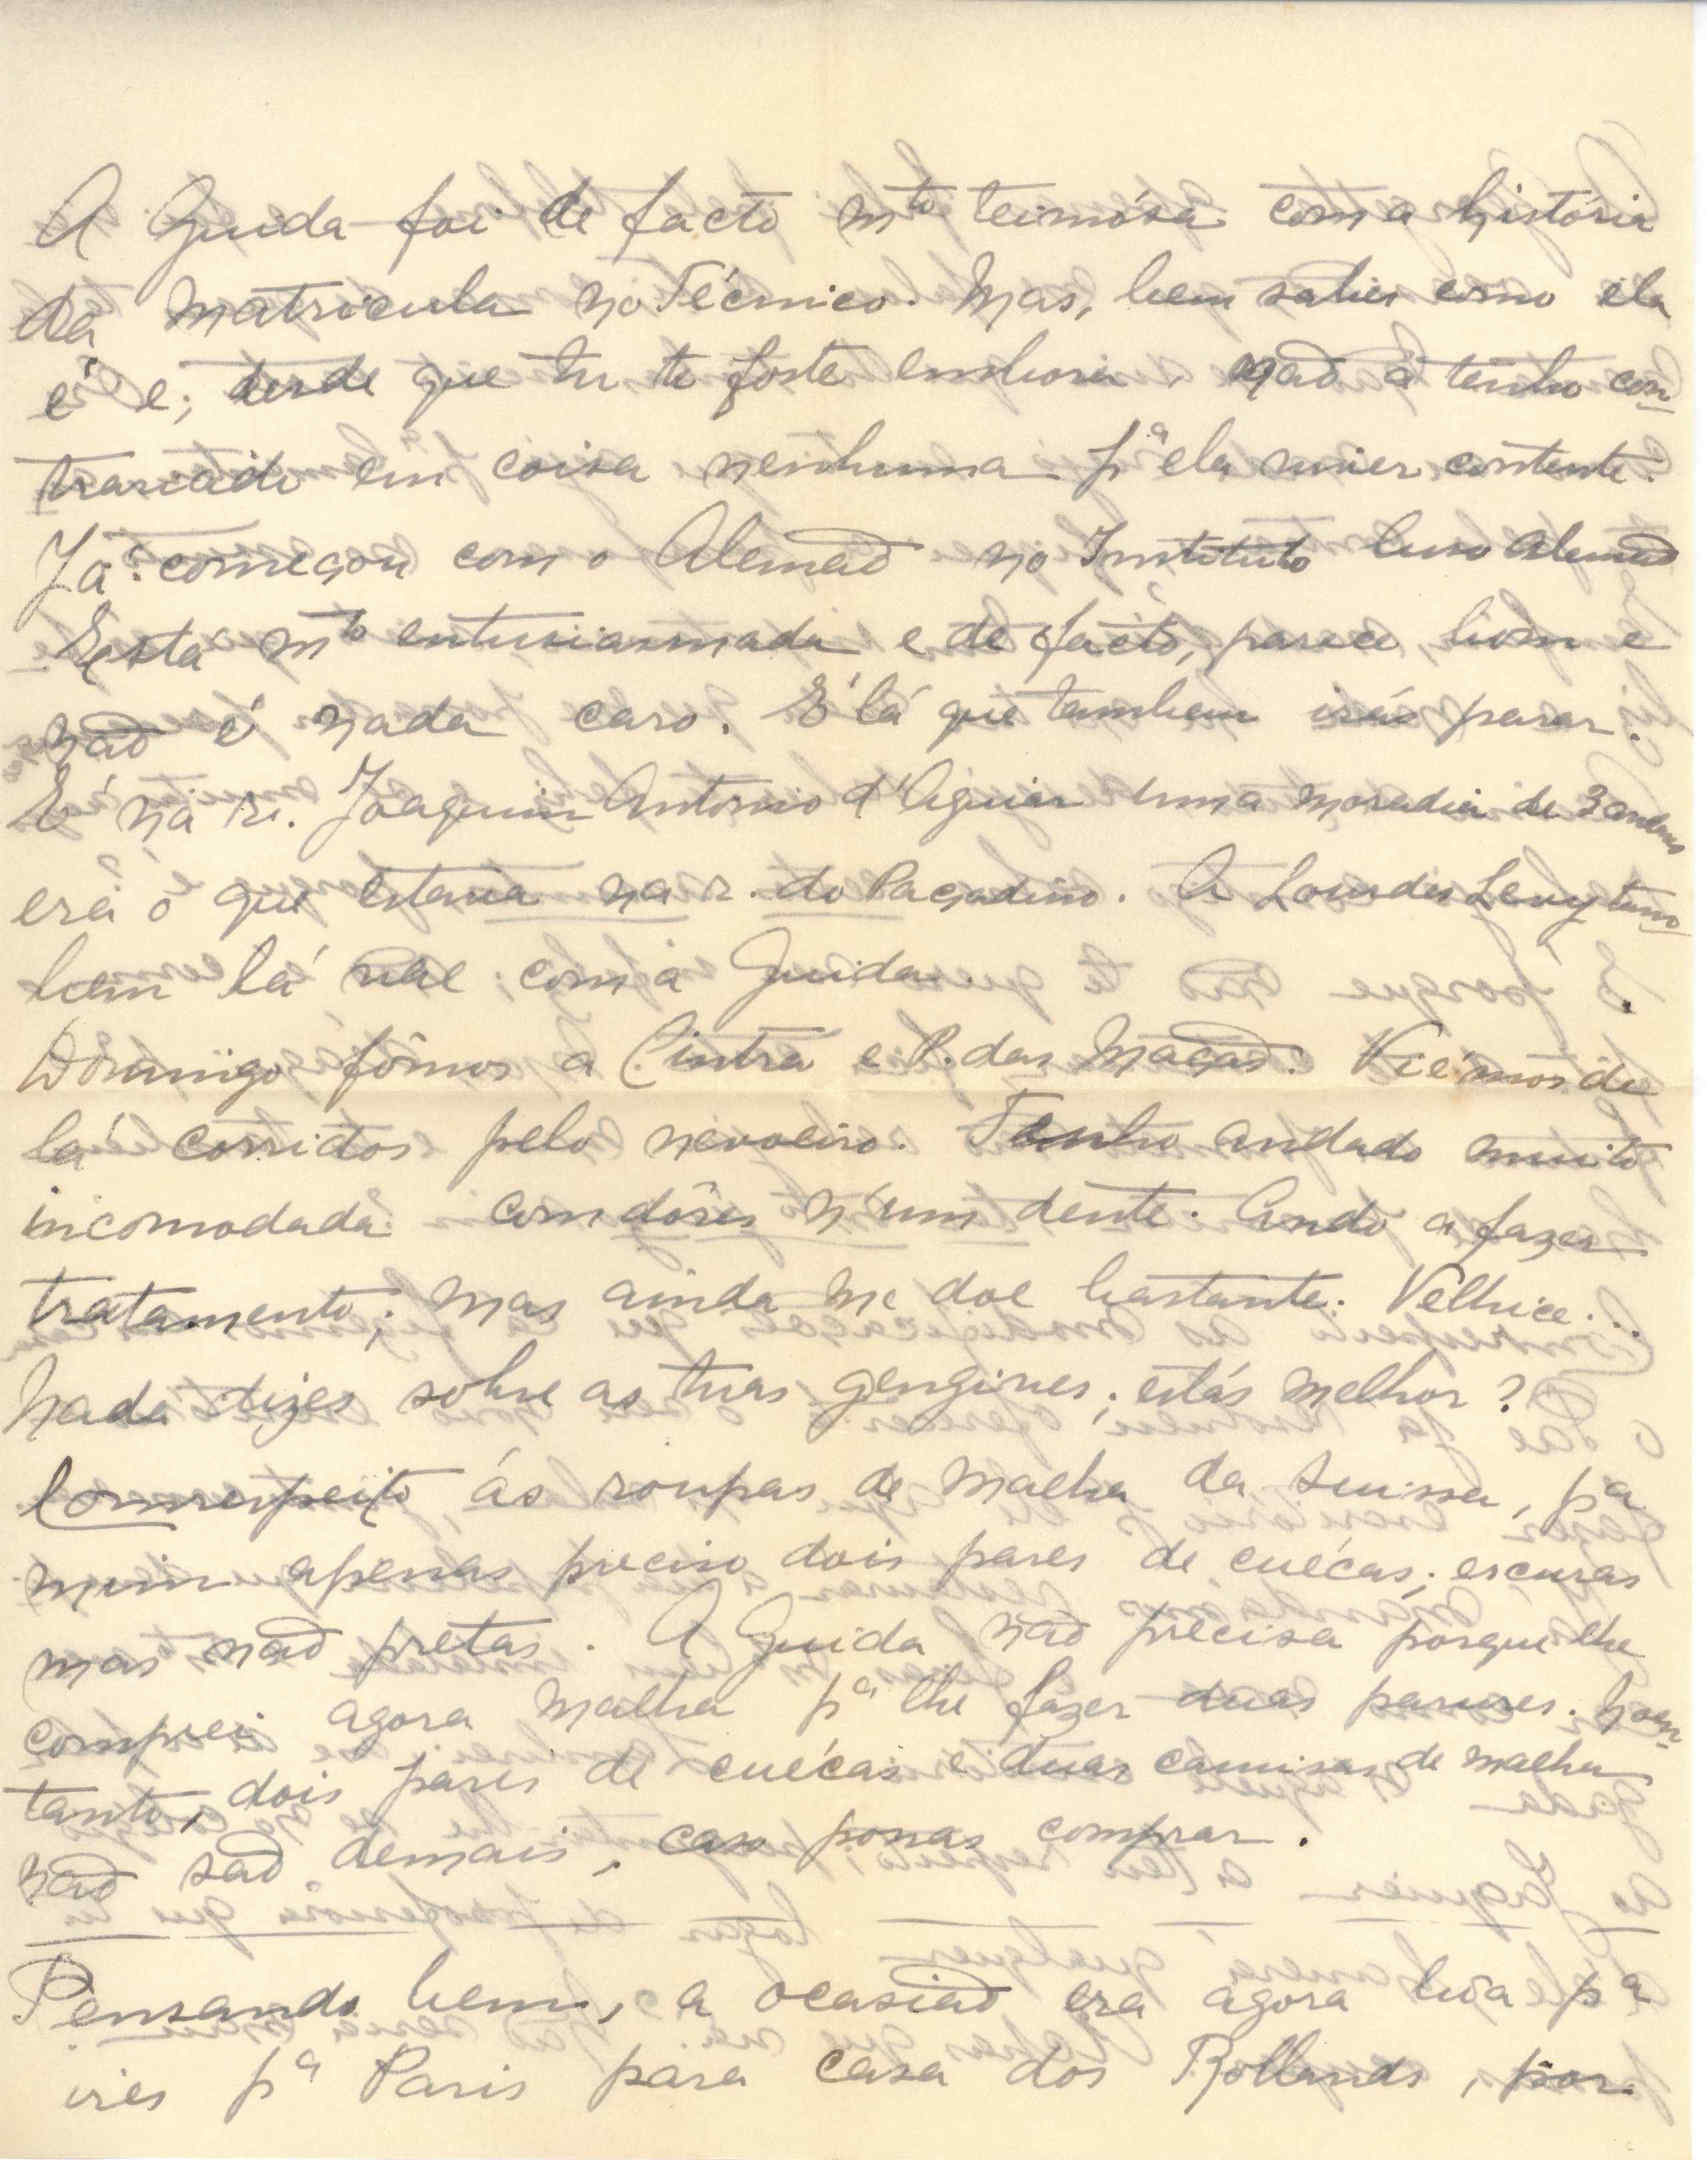 A Guida foi de facto mto teimósa com a história
da matricula no Técnico. Mas, bem sabes como ela
é e, desde que tu te foste embora, não a tenho con-
trariado em coisa nenhuma pª ela viver contente.
Já começou com o Alemão no Instituto Luso Alemão
Está mto entusiasmada e de facto, parece bom e
não é nada caro. É lá que tambem irás parar.
É na r. Joaquim Antonio d'Aguiar numa moradia de 3 andares
era o que estava na r. do Passadiço. A Lourdes Levy tam-
bem lá vae com a Guida.
Domingo fômos a Cintra e P. das Maçãs. Viémos de
lá corridos pelo nevoeiro. Tenho andado muito
incomodada com dôres n'um dente. Ando a fazer
tratamento; mas ainda me doe bastante. Velhice...
Nada dizes sobre as tuas gengives; estás melhor?
Com respeito ás roupas de malha da Suissa, pª
mim apenas preciso dois pares de cuécas; escuras
mas não pretas. A Guida não precisa porque lhe
comprei agora malha pª lhe fazer duas parures. No en-
tanto, dois pares de cuécas e duas camisas de malha
não são demais, caso possas comprar.
Pensando bem, a ocasião era agora bôa pª
ires pª Paris para casa dos Rollands, por